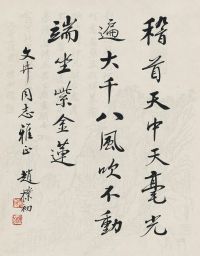 稽首天中天毫光
遍大千八風吹不動
端坐紫金蓮
文井同志雅正
趙樸初